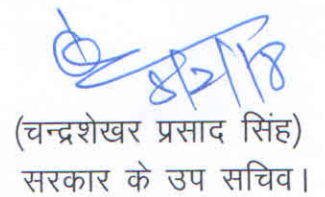 8/2/18
(चन्द्रशेखर प्रसाद सिंह)
सरकार के उप सचिव।